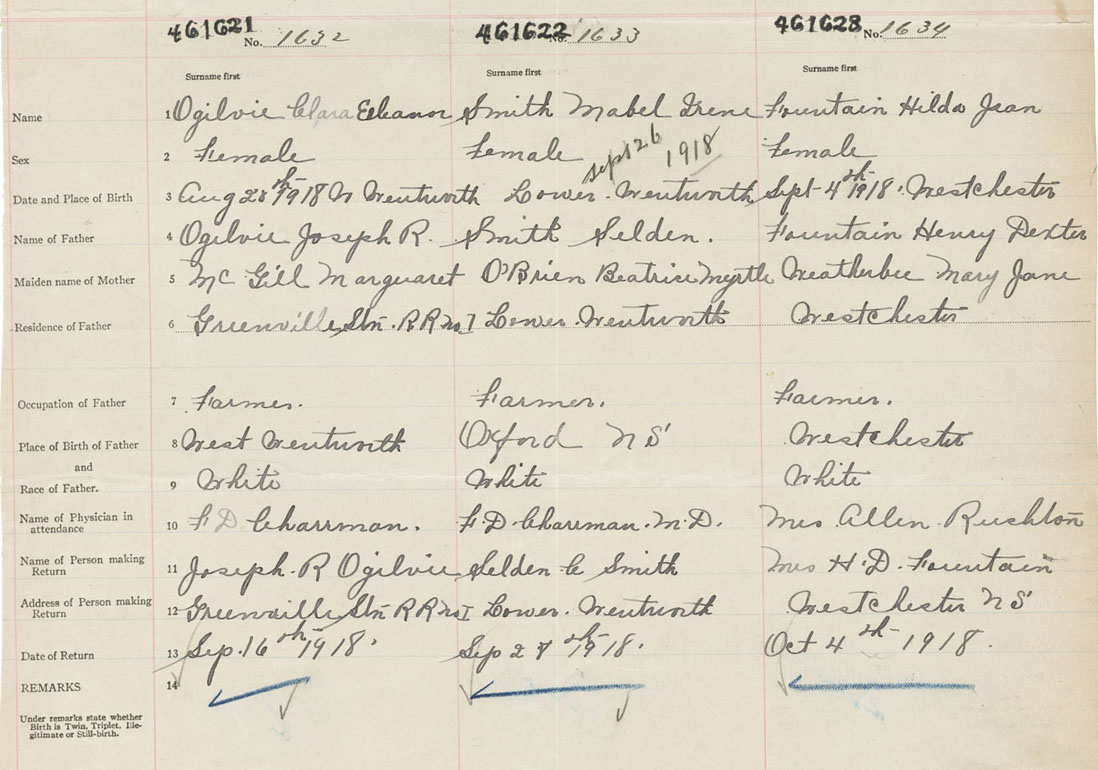 461621 No. 1632 461622 No. 1633 461623 No. 1634
Surname first Surname first Surname first
Name 1 Ogilvie Clara Eleanor Smith Mabel Irene Fountain Hilda Jean
Sex 2 Female Female Sept 26 1918 Female
Date and Place of Birth 3 Aug 28th 1918 W Wentworth Lower Wentworth Sept 4th 1918. Westchester
Name of Father 4 Ogilvie Joseph R. Smith Selden. Fountain Henry Dexter
Maiden name of Mother 5 Mc Gill Marguaret O'Brien Beatrice Myrtle Weatherbee Mary Jane
Residence of Father 6 Greenville Stn. R R No 1 Lower Wentworth Westchester
Occupation of Father 7 Farmer. Farmer. Farmer.
Place of Birth of Father 8 West Wentworth Oxford N S Westchester
and
Race of Father. 9 White White White
Name of Physician in
attendance 10 F D Charman. F. D. Charman. M. D. Mrs Allen Rushton
Name of Person making
Return 11 Joseph. R Ogilvie Selden C Smith Mrs H. D. Fountain
Address of Person making
Return 12 Greenville Stn R R No 1 Lower. Wentworth Westchester N S
Date of Return 13 Sep. 16th 1918. Sep 27th 1918. Oct 4th 1918.
REMARKS 14
Under remarks state whether
Birth is Twin, Triplet, Ille-
gitimate or Still-birth.